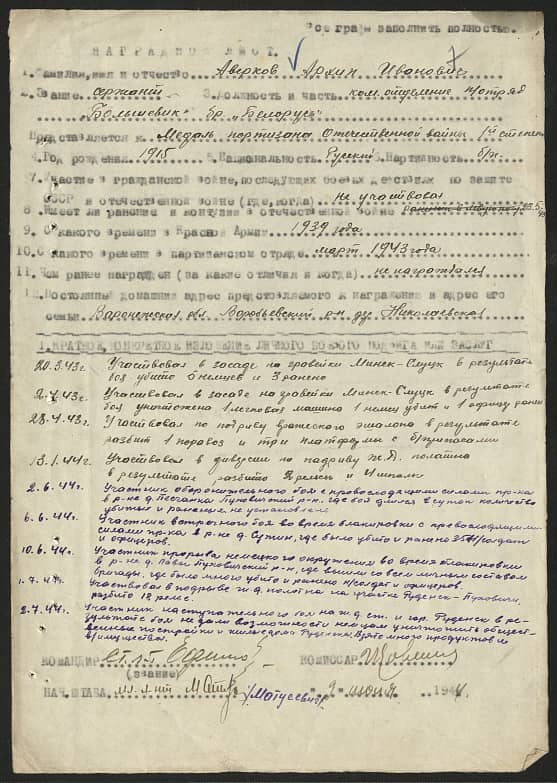 Все графы заполнить полностью.
НАГРАДНОЙ ЛИСТ.
1. Фамилия, имя и отчество Аверков Архип Иванович
2. Звание сержант 3. Должность и часть ком. отделение п/отряд
"Большевик" бр. "Беларусь"
Представляется к Медаль партизана Отечественной войны I степени
4. Год рождения 1915 5. Национальность Русский 6. Партийность б/п
7. Участие в гражданской войне, последующих боевых действиях по защите
СССР и отечественной войне (где, когда) не участвовал
8. Имеет ли ранение и контузии в отечественной войне
9. С какого времени в Красной Армии 1939 года
10. С какого времени в партизанском отряде март 1943 года
11. Чем ранее награжден (за какие отличия и когда) не награждался
12. Постоянный домашний адрес представляемого к награждению и адрес его
семьи Воронежская обл. Воробьевский р-н дер. Николаевская
1. КРАТКОЕ, КОНКРЕТНОЕ ИЗЛОЖЕНИЕ ЛИЧНОГО БОЕВОГО ПОДВИГА ИЛИ ЗАСЛУГ
20.3.43г. Участвовал в засаде на гравейки Минск-Слуцк в результате
боя убито 5 немцев и 3 ранено
Участвовал в засаде на гравейки Минск-Слуцк в результате
боя уничтожена 1 легковая машина 1 немец убит и 1 офицер ранен
28.4.43г. Участвовал по подриву вражеского эшалона в результате
разбит 1 паровоз и три платформы с б/припасами
13.1.44г. Участвовал в диверсии по подриву ж.д. полатна
в результате разбито
2.6.44г. Участник оборонительного боя с превосходящими силами пр-ка
в р-не д. Песчанка Пуховичский р-н, где бой длился в сутки количество
убитых и ранения не установлено
6.6.44г. Участник встречного боя во время блакировки с превосходящими
силами пр-ка в р-не д. Сутин, где было убито и ранено 35 н/солдат
и офицеров.
10.6.44г. Участник прорыва немецкого окружения во время блакировки
в р-не д. Пуховичский р-н, где вышли со всем личным составом
бригады, где было много убито и ранено н/солдат и офицеров
1.7.44г. Участвовал в подрыве ж.д. полотна на участке Руденск-Пуховичи,
разбито 18 рельс.
2.7.44г. Участник наступательного боя на ж.д. ст. и гор. Руденск в ре-
зультате боя не дали возможности немцам уничтожить обществ-
енные постройки и жилые дома Руденска. Взято много продуктов и
имущества.
КОМАНДИР ст. л-т КОМИССАР
(звание)
НАЧ. ШТАБА мл. л-нт /Матусевич/ 1944г.